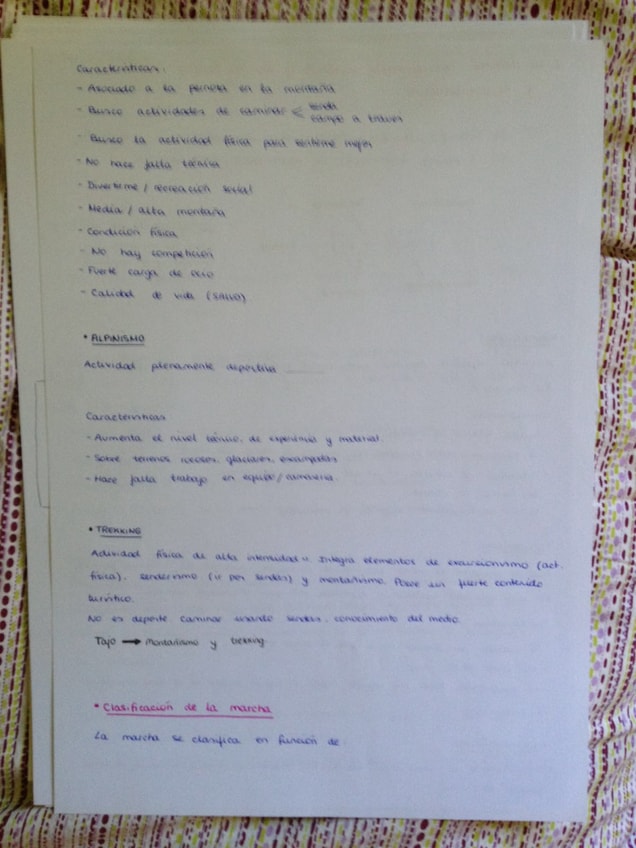 Características:
- Asociado a la pernocta en la montaña
- Busco actividades de caminar < senda
campo a través
- Busco la actividad física para sentirme mejor
- No hace falta técnica
- Divertirme / recreación social
- Media / alta montaña
- Condición física
- No hay competición
- Fuerte carga de ocio
- Calidad de vida (SALUD)
• ALPINISMO
Actividad plenamente deportiva
Características
- Aumenta el nivel técnico, de experiencia y material.
- Sobre terrenos rocosos, glaciares, escarpados
- Hace falta trabajo en equipo /
• TREKKING
Actividad física de alta intensidad. Integra elementos de excursionismo (act.
física), senderismo (ir por sendas) y montañismo. Posee un fuerte contenido
turístico.
No es deporte caminar usando sendas, conocimiento del medio.
Tajo → Montañismo y trekking
• Clasificación de la marcha
La marcha se clasifica en función de: